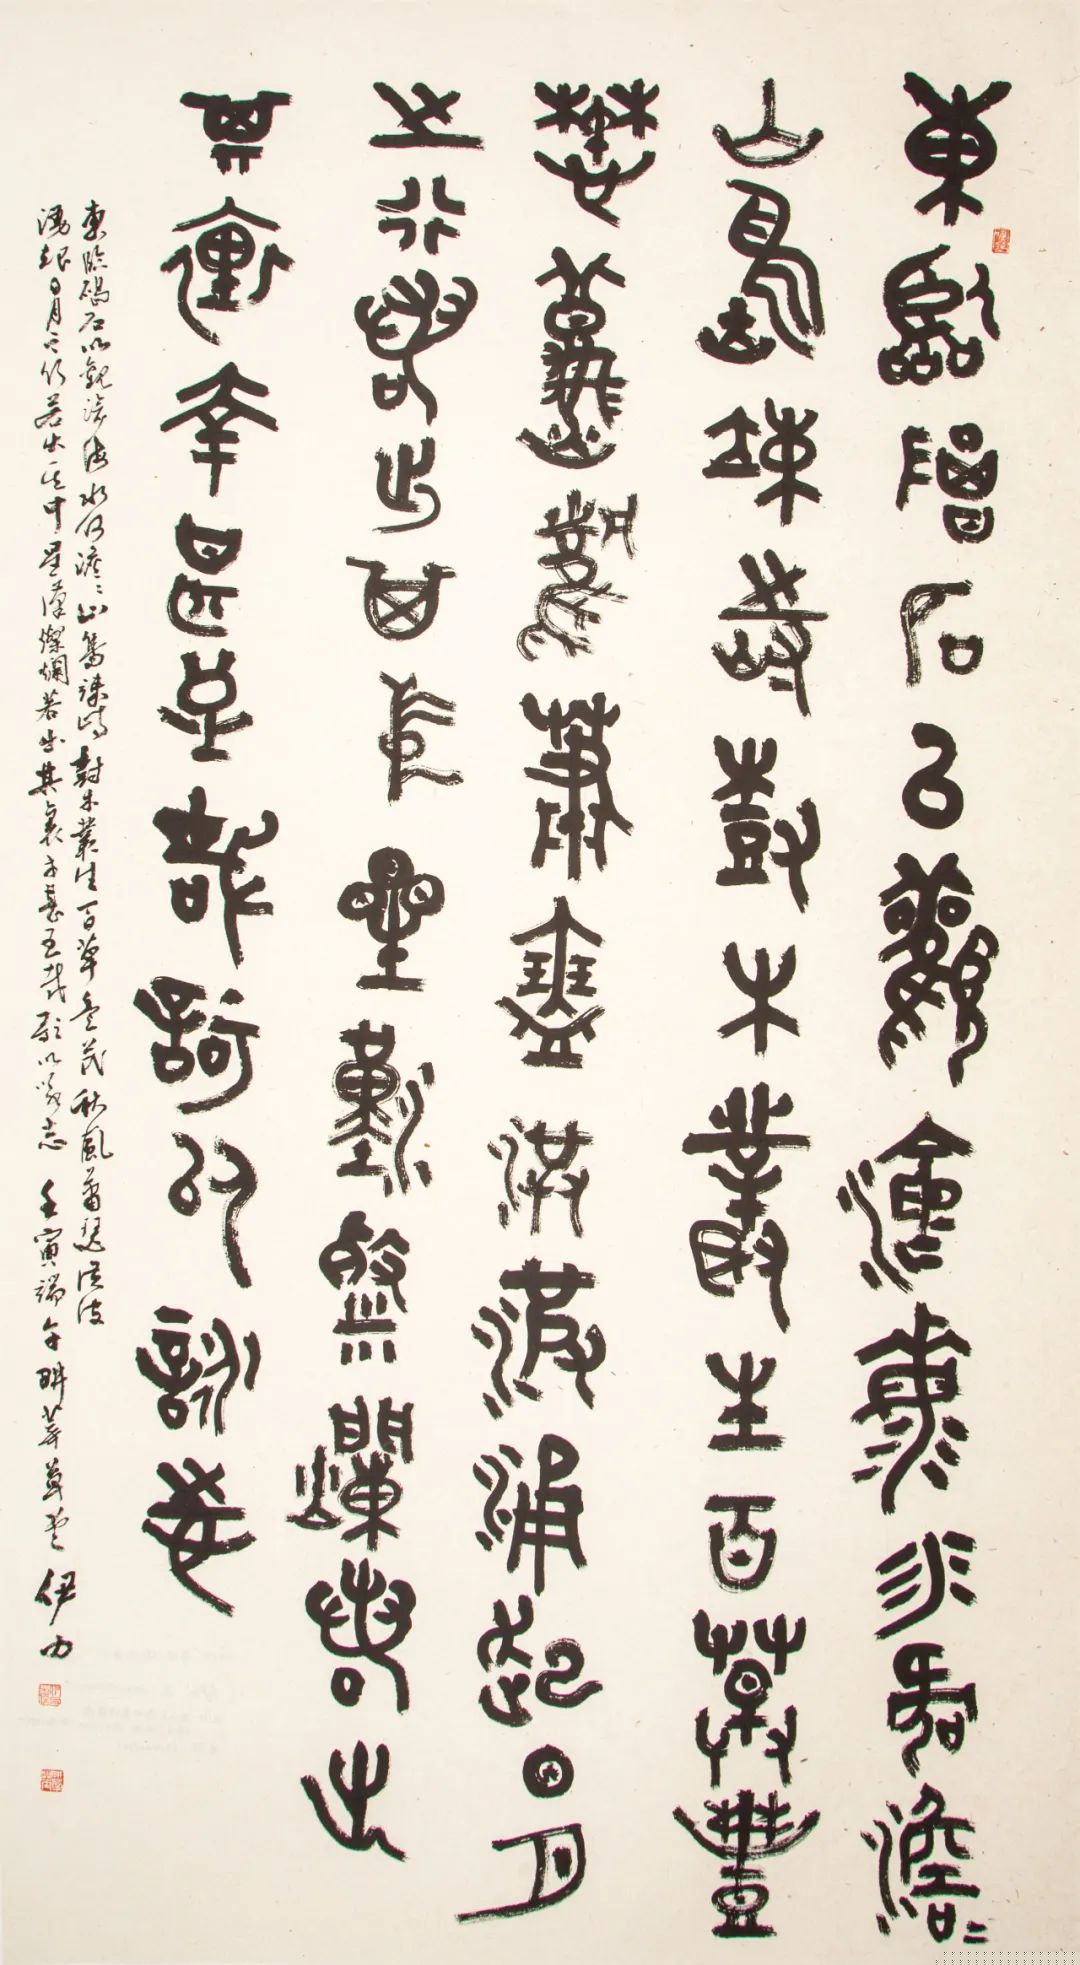 東臨碣石以觀滄海水何澹〻
山島竦峙樹木叢生百草豐
茂秋風蕭瑟洪波涌起日月
之行若出其中星漢燦爛若出
其裏幸甚至哉歌以詠志
東臨碣石以觀滄海水何澹〻山島竦峙樹木叢生百草豐茂秋風蕭瑟洪波
湧起日月之行若出其中星漢燦爛若出其裏幸甚至哉歌以詠志 壬寅端午畊莘草堂 伊力